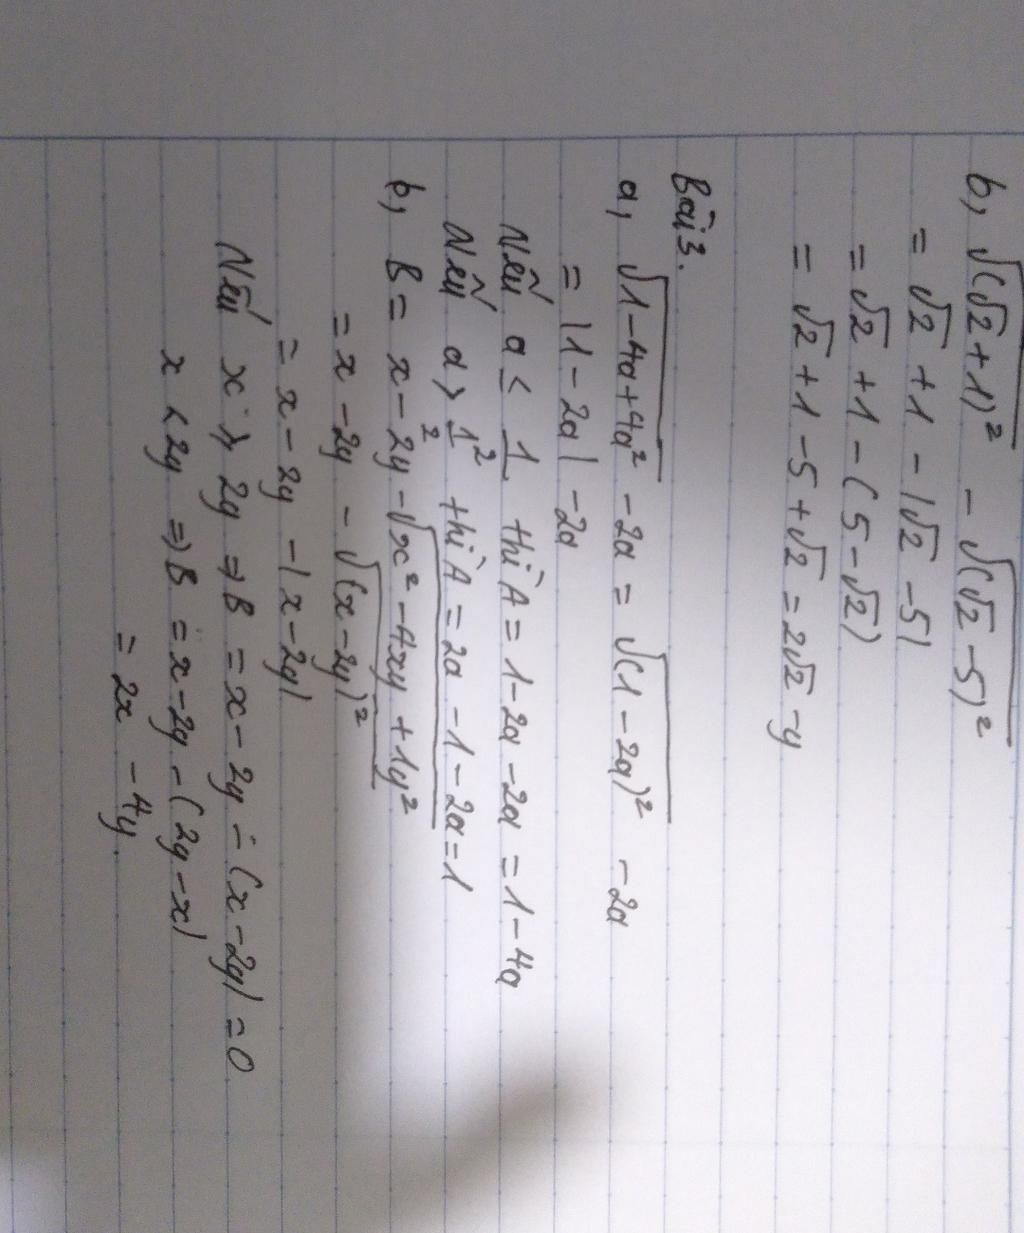 b, √(√2+1)² - √(√2-5)²
= √2 + 1 - |√2 - 5|
= √2 + 1 - (5 - √2)
= √2 + 1 - 5 + √2 = 2√2 - y
Bài 3.
a, √1-4a+4a² - 2a = √(1-2a)² - 2a
= |1 - 2a| - 2a
Nếu a ≤ 1/2 thì A = 1 - 2a - 2a = 1 - 4a
Nếu a > 1/2 thì A = 2a - 1 - 2a = 1
b, B = x - 2y - √x² - 4xy + 1y²
= x - 2y - √(x-2y)²
= x - 2y - |x - 2y|
Nếu x > 2y ⇒ B = x - 2y - (x - 2y) = 0
x < 2y ⇒ B = x - 2y - (2y - x)
= 2x - 4y